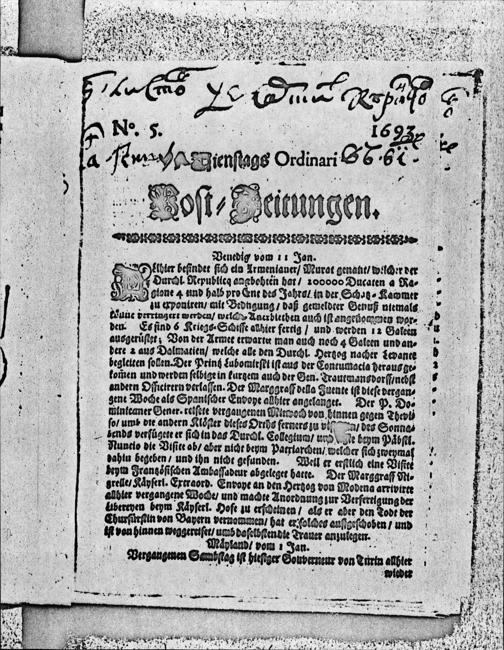 No. 5.
1693
Dienstags Ordinari
Post-Zeitungen.
Venedig vom 11 Jan.
Allhier befindet sich ein Armenianer/ Murat genant/ welcher der
Durchl. Republicq angebohten hat/ 100000 Ducaten a Ra-
gione 4 und halb pro Cne des Jahrs/ in der Schaz-Kammer
zu exponiren/ mit Bedingung/ daß gemeldter Genuß niemals
könne verringert werden/ welch Anerbiethen auch ist angenommen wor-
den. Es sind 6 Kriegs-Schiffe allhier fertig/ und werden 12 Galeen
ausgerüstet; Von der Armee erwartet man auch noch 4 Galeen und an-
dere 2 aus Dalmatien/ welche alle den Durchl. Hertzog nacher Levante
begleiten sollen. Der Printz Lubomirski ist aus der Contumacia heraus ge-
komen und werden selbige in kurtzem auch der Gen. Trautmansdorff/ nebst
andern Officirern verlassen. Der Marggraff della Fuente ist diese vergan-
gene Woche als Spanischer Envoye allhier angelanget. Der P. Do-
minicaner Gener. reisete vergangenen Mitwoch von hinnen gegen Thevi-
so/ umb die andern Klöster dieses Orths ferners zu des Sonna-
bends verfügete er sich in das Durchl. Collegium/ und beym Päbstl.
Nuncio die Visite ab/ aber nicht beym Patriarchen/ welcher sich zweymal
dahin begeben/ und ihn nicht gefunden. Weil er erstlich eine Visite
beym Französischen Ambassadeur abgeleget hatte. Der Marggraff Ni-
grelle/ Käyserl. Extraord. Envoye an den Hertzog von Modena arrivirte
allhier vergangene Woche/ und machte Anordnung zur Verfertigung der
Libereyen beym Käyserl. Hofe zu erscheinen/ als er aber den Tod der
Churfürstin von Bayern vernommen/ hat er solches aufgeschoben/ und
ist von hinnen weggereiset/ umb daselbsten die Trauer anzulegen.
Mäyland/ vom 1 Jan.
Vergangenen Sambstag ist hiesiger Gouverneur von Turin allhier
wieder